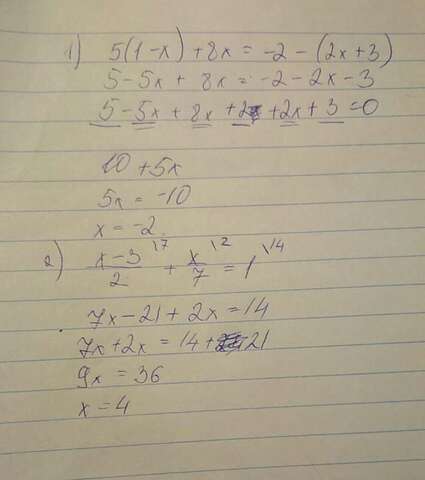 1) 5(1-x)+8x=-2-(2x+3)
5-5x+8x=-2-2x-3
5-5x+8x+2+2x+3=0
10+5x
5x=-10
x=-2
2) \frac{x-3}{2}^{\7} + \frac{x}{7}^{\2} = 1^{\14}
7x-21+2x=14
7x+2x=14+21
9x=36
x=4